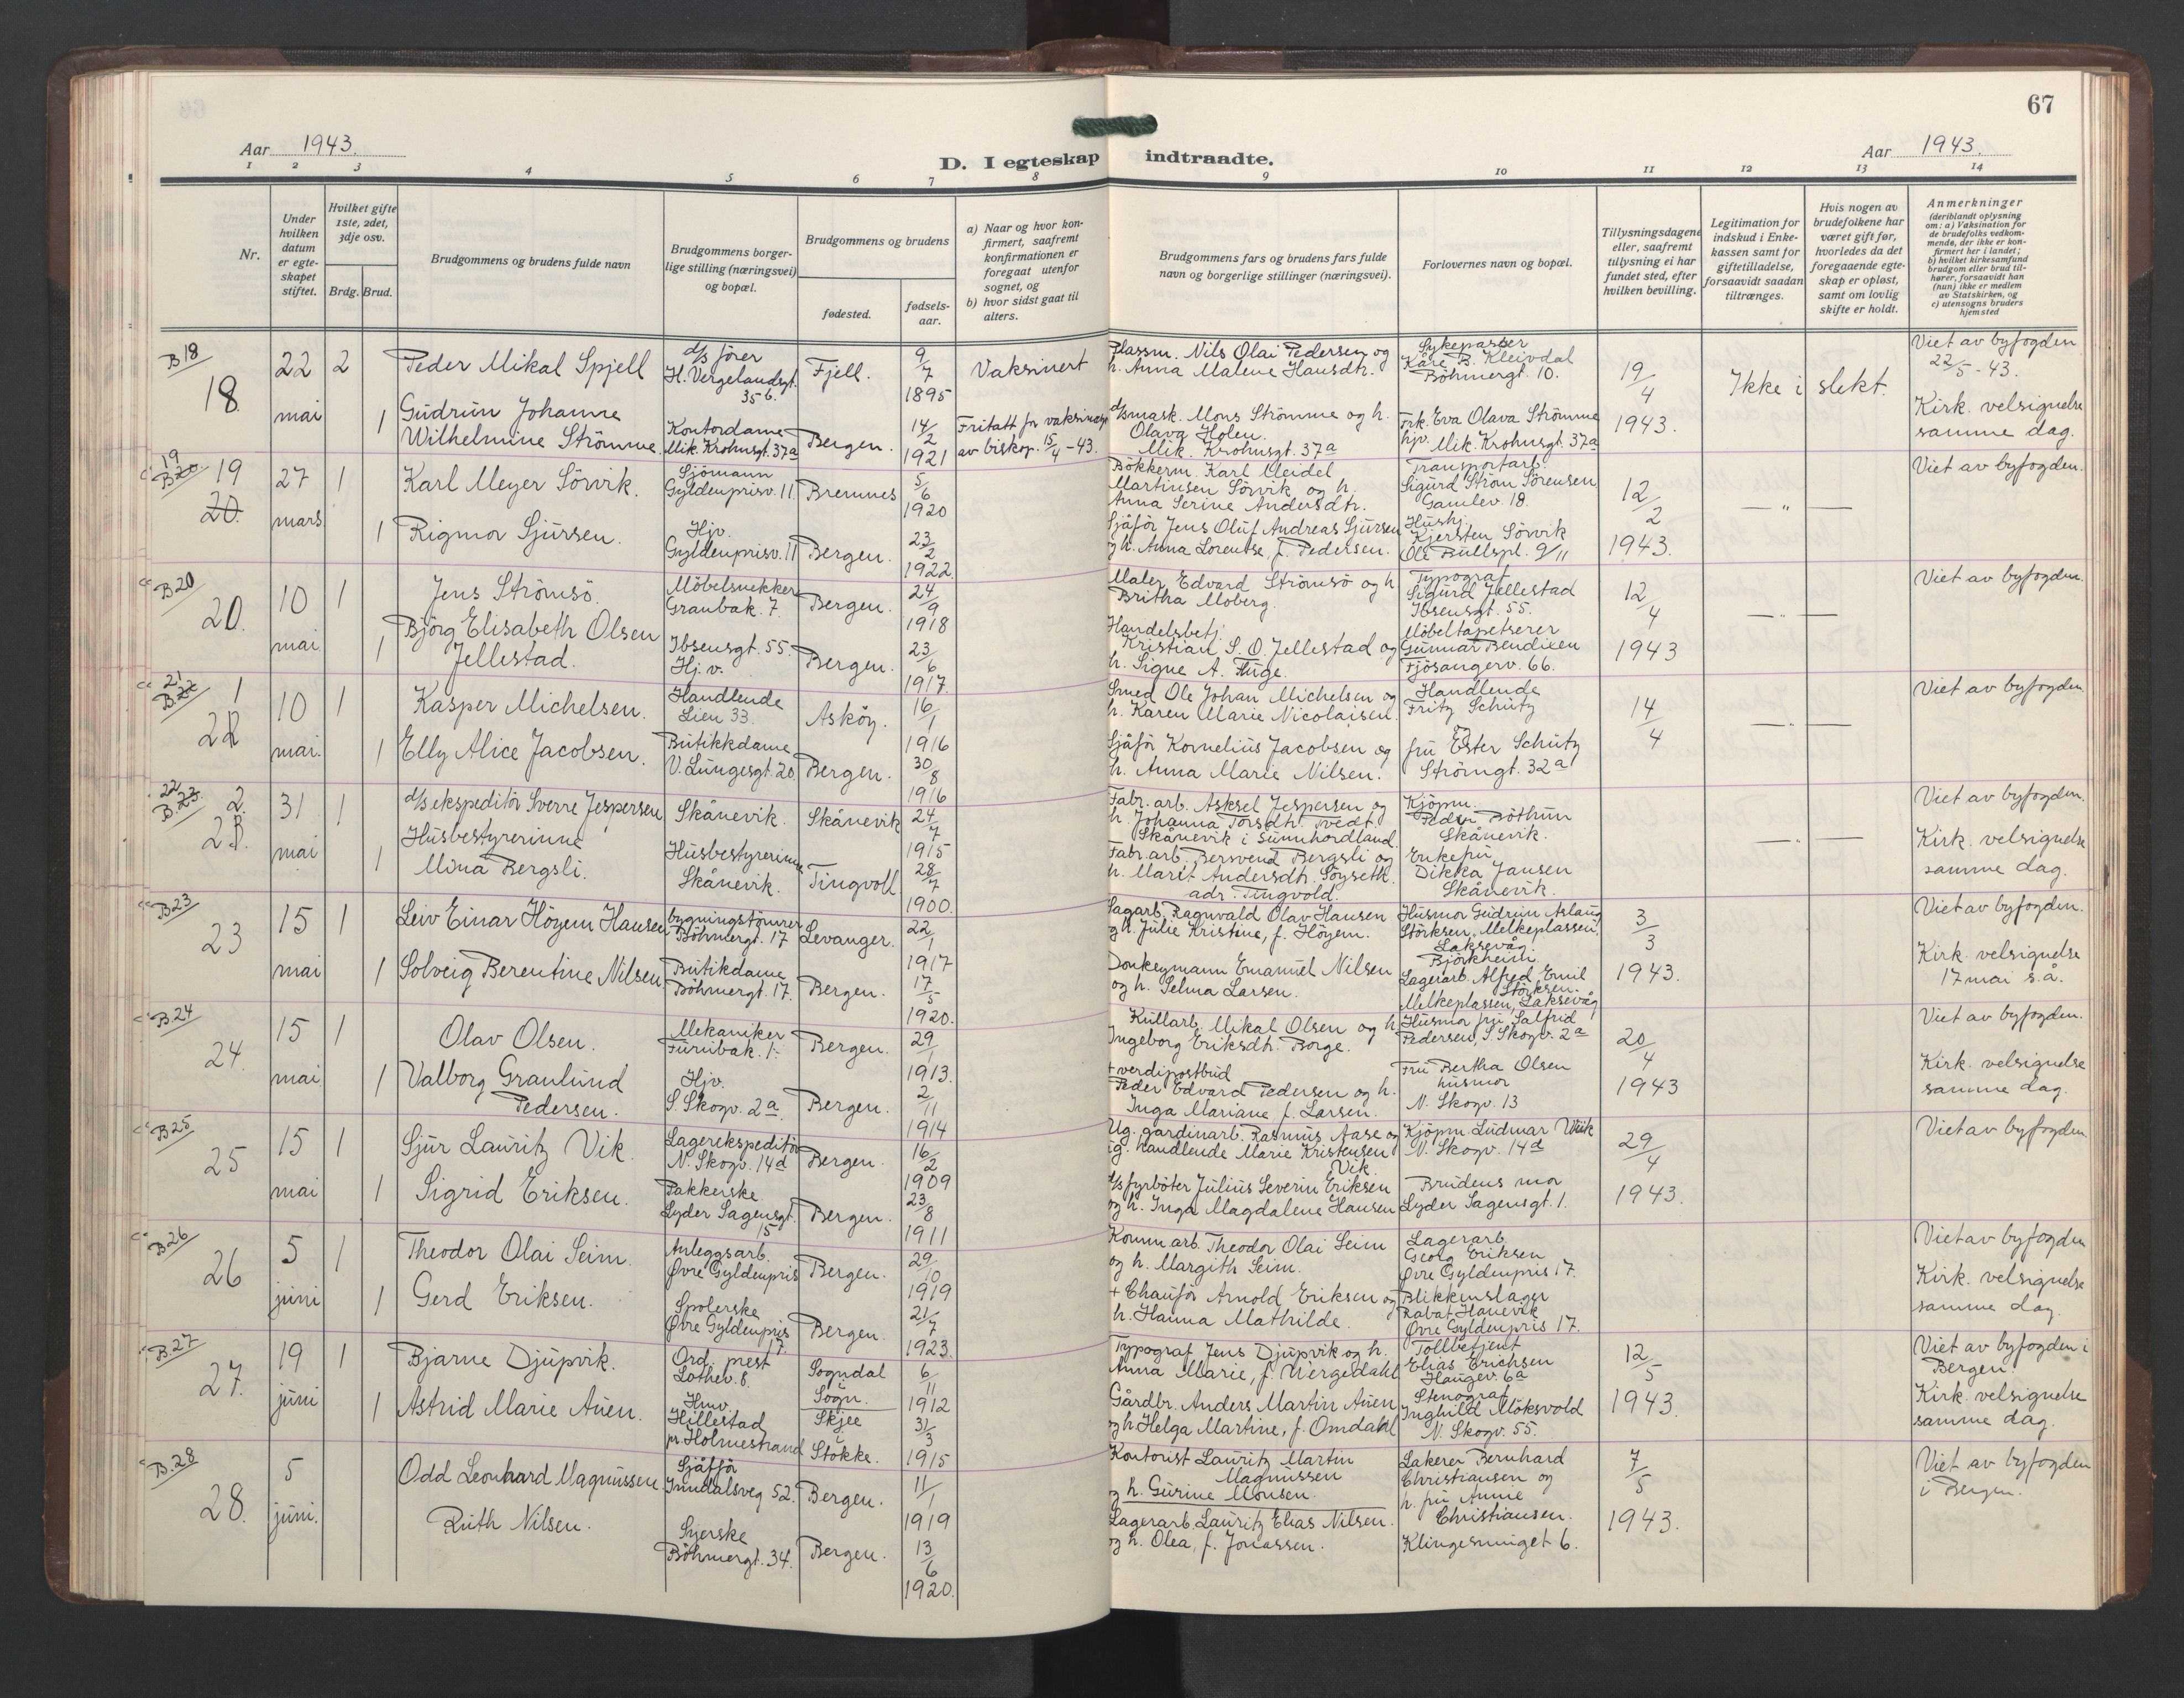 67
Aar 1943.
D. I egteskap indtraadte.
Aar 1943.
1 2 3 4 5 6 7 8 9 10 11 12 13 14
Nr.
Under hvilken datum er egte-skapet stiftet.
Hvilket gifte 1ste, 2det, 3dje osv.
Brdg. Brud.
Brudgommens og brudens fulde navn
Brudgommens borger-lige stilling (næringsvei) og bopæl.
Brudgommens og brudens
fødested.
fødsels-aar.
a) Naar og hvor kon-firmert, saafremt konfirmationen er foregaat utenfor sognet, og
b) hvor sidst gaat til alters.
Brudgommens fars og brudens fars fulde navn og borgerlige stillinger (næringsvei).
Forlovernes navn og bopæl.
Tillysningsdagene eller, saafremt tillysning ei har fundet sted, efter hvilken bevilling.
Legitimation for indskud i Enke-kassen samt for giftetilladelse, forsaavidt saadan tiltrænges.
Hvis nogen av brudefolkene har været gift før, hvorledes da det foregaaende egte-skap er opløst, samt om lovlig skifte er holdt.
Anmerkninger
(deriblandt oplysning om: a) Vaksination for de brudefolks vedkom-mende, der ikke er kon-firmert her i landet; b) hvilket kirkesamfund brudgom eller brud til-hører, forsaavidt han (hun) ikke er medlem av Statskirken, og c) utensogns bruders hjemsted
B 18
18.
22 mai
2
1
Peder Mikal Spjell
Gudrun Johanne
Wilhelmine Strömme.
d/s förer
H. Vergelandsgt.
35 b.
Kontordame
Mik. Krohnsgt. 37a
Fjell.
Bergen.
9/7 1895
14/2 1921
Vaksinert
Fritatt for vaksinasj.
av biskop. 15/4 - 43.
Plassm. Nils Olai Pedersen og
h. Anna Malene Hansdtr.
d/smask. Mons Strömme og h.
Olava Holen.
Mik. Krohnsgt. 37a
Sykepasser
Kåre B. Kleivdal
Böhmergt. 10.
Frk. Eva Olava Strömme
hjv. Mik. Krohnsgt. 37a
19/4 1943.
Ikke i slekt.
Viet av byfogden
22/5 - 43.
Kirk. velsignelse
samme dag.
19
B 20
19
20.
27 mars
1
1
Karl Meyer Sörvik.
Rigmor Sjursen.
Sjömann
Gyldenprisv. 11.
Hjv.
Gyldenprisv. 11
Bremnes
Bergen.
5/6 1920
23/2 1922
Bökkerm. Karl Meidel
Martinsen Sörvik og h.
Anna Serine Andersdtr.
Sjåför Jens Oluf Andreas Sjursen
og h. Anna Lorentse, f. Pedersen.
Transportarb.
Sigurd Ström Sörensen
Gamlev. 18.
Hushj.
Kjersten Sörvik
Ole Bullspl. 9/11
12/2 1943.
— " —
Viet av byfogden.
B 20
20.
10 mai
1
1
Jens Strömsö.
Björg Elisabeth Olsen
Jellestad.
Möbelsnekker
Granbak. 7.
Ibsensgt. 55.
Hj. v.
Bergen.
Bergen.
24/9 1918
23/6 1917.
Maler Edvard Strömsö og h.
Britha Moberg.
Handelsbetj.
Kristian S. O. Jellestad og
h. Signe A. Fluge.
Typograf
Sigurd Jellestad
Ibsensgt. 55.
Möbeltapetserer
Gunnar Bendixen
Fjösangerv. 66.
12/4 1943
— " —
Viet av byfogden.
21
B. 22
1
22
10 mai.
1
1
Kasper Michelsen.
Elly Alice Jacobsen.
Handlende
Lien 33.
Butikkdame
V. Lungesgt. 20.
Asköy.
Bergen.
16/1 1916
30/8 1916
Smed Ole Johan Michelsen og
h. Karen Marie Nicolaisen.
Sjåför Kornelius Jacobsen og
h. Anna Marie Nilsen.
Handlende
Fritz Schutz
og
fru Ester Schutz
Strömgt. 32a
14/4
— " —
Viet av byfogden
22
B. 23.
2.
23.
31 mai
1
1
d/s ekspeditör Sverre Jespersen
Husbestyrerinne
Mina Bergsli.
Skånevik.
Husbestyrerinne
Skånevik.
Skånevik
Tingvoll
24/7 1915
28/7 1900.
Fabr. arb. Asksel Jespersen og
h. Johanna Torsdtr. Tvedt.
Skånevik i Sunnhordland.
Fabr. arb. Bersvend Bergsli og
h. Marit Andersdtr. Söyseth.
adr. Tingvold.
Kjöpm.
Peder Böthun
Skånevik.
Enkefru
Dikka Jansen
Skånevik.
— " —
Viet av byfogden.
Kirk. velsignelse
samme dag.
B 23
23
15 mai
1
1
Leiv Einar Höyem Hansen
Solveig Berentine Nilsen
bygningstömrer
Böhmergt. 17
Butikdame
Böhmergt. 17.
Levanger.
Bergen.
22/1 1917
17/5 1920.
Sagarb. Ragnvald Olav Hansen
og h. Julie Kristine, f. Höyem.
Donkeymann Emanuel Nilsen
og h. Selma Larsen.
Husmor Gudrun Aslaug
Störksen, Melkeplassen,
Laksevåg.
Björkheim.
Lagerarb. Alfred Emil
Störksen.
Melkeplassen, Laksevåg
3/3 1943.
Viet av byfogden.
Kirk. velsignelse
17 mai s.å.
B. 24
24.
15 mai
1
1
Olav Olsen.
Valborg Granlund
Pedersen.
Mekaniker
Furubak. 1.
Hjv.
S. Skogv. 2a.
Bergen.
Bergen.
29/1 1913.
2/11 1914
Kullarb. Mikal Olsen og h.
Ingeborg Eriksdtr. Borge.
+ verdipostbud
Peder Edvard Pedersen og h.
Inga Mariane f. Larsen.
Husmor fru Salfrid
Pedersen, S. Skogv. 2a
Fru Bertha Olsen
husmor
N. Skogv. 13
20/4 1943
Viet av byfogden.
Kirk. velsignelse
samme dag.
B 25
25
15 mai
1
1
Sjur Lauritz Vik.
Sigrid Eriksen.
Lagerekspeditör
N. Skogv. 14d
Pakkerske
Lyder Sagensgt.
15
Bergen.
Bergen.
16/2 1909
23/8 1911
Ug. gardinarb. Rasmus Aase og
ug. handlende Marie Kristensen
Vik.
d/s fyrböter Julius Severin Eriksen
og h. Inga Magdalene Hansen
Kjöpm. Ludmar Wiik
N. Skogv. 14d
Brudens mor
Lyder Sagensgt. 1.
29/4 1943.
Viet av byfogden
B 26
26
5 juni
1
1
Theodor Olai Seim.
Gerd Eriksen.
Anleggsarb.
Øvre Gyldenpris
Spolerske
Øvre Gyldenpris
17.
Bergen.
Bergen.
29/10 1919
21/7 1923.
Komm. arb. Theodor Olai Seim
og h. Margith Seim.
+ Chauför Arnold Eriksen og
h. Hanna Mathilde.
Lagerarb.
Georg Eriksen
Øvre Gyldenpris 17.
Blikkenslager
Rabat Hanevik
Øvre Gyldenpris 17.
Viet av byfogden
Kirk. velsignelse
samme dag.
B. 27
27.
19 juni
1
1
Bjarne Djupvik.
Astrid Marie Auen.
Ord. prest
Lothev. 8.
Hmv.
Hillestad
pr. Holmestrand
Sogndal
i
Sogn.
Skjee
i
Stokke.
6/11 1912
31/3 1915
Typograf Jens Djupvik og h.
Anna Marie, f. Wergedahl
Gårdbr. Anders Martin Auen
og h. Helga Martine, f. Omdahl
Tollbetjent
Elias Erichsen
Haugev. 6a
Stenograf
Inghild Möksvold
N. Skogv. 55.
12/5 1943.
Viet av byfogden i
Bergen.
Kirk. velsignelse
samme dag.
B. 28
28.
5 juni.
Odd Leonhard Magnussen.
Ruth Nilsen.
Sjåfför
Inndalsveg 52.
Syerske
Böhmergt. 34.
Bergen.
Bergen.
11/1 1919
13/6 1920.
Kontorist Lauritz Martin
Magnussen
og h. Gurine Monsen.
Lagerarb. Lauritz Elias Nilsen.
og h. Olea, f. Jonassen.
Lakerer Bernhard
Christiansen og
h. fru Annie
Christiansen.
Klingesmuget 6.
7/5 1943.
Viet av byfogden
i Bergen.